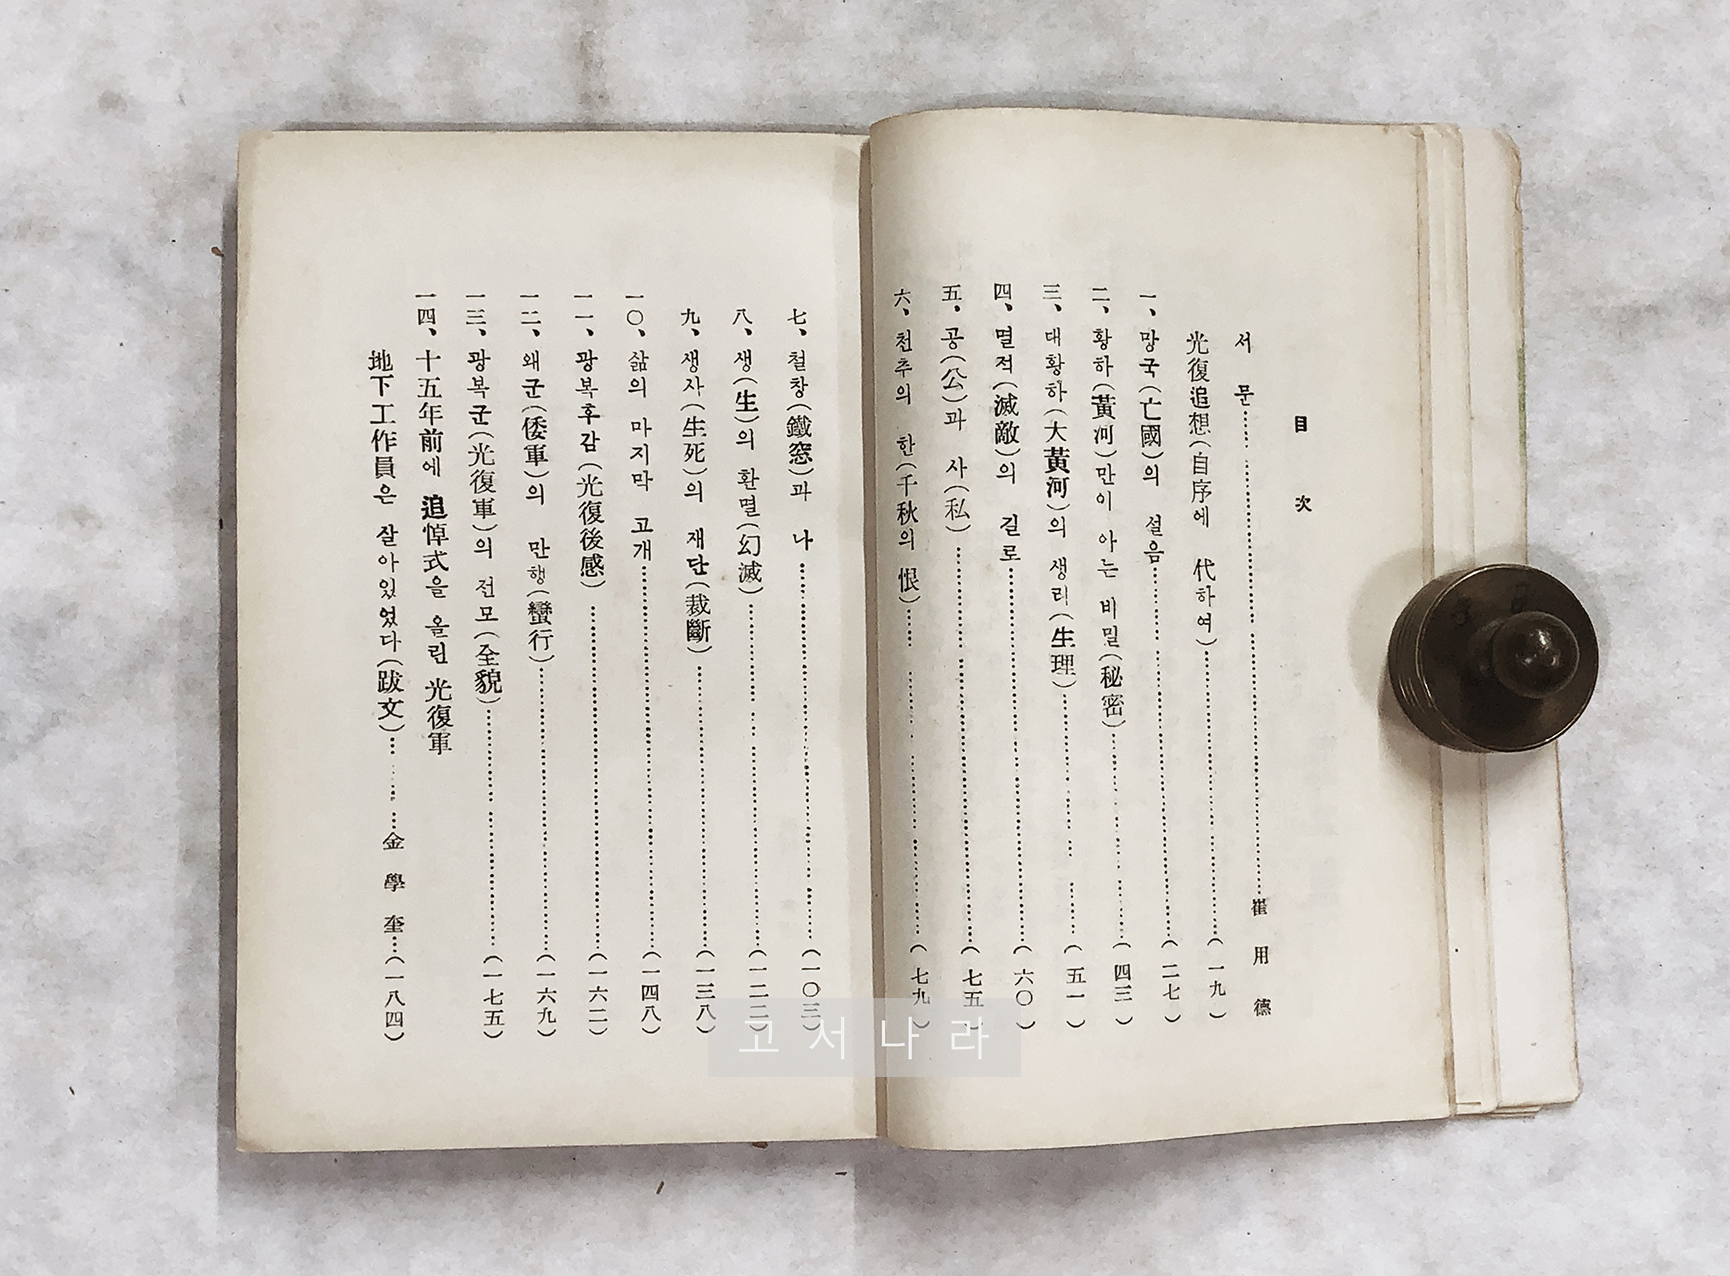 目次
서문 崔用德
光復追想(自序에 代하여) (一九)
一、망국(亡國)의 설음 (二七)
二、황하(黃河)만이 아는 비밀(秘密) (四三)
三、대황하(大黃河)의 생리(生理) (五一)
四、멸적(滅敵)의 길로 (六〇)
五、공(公)과 사(私) (七五)
六、천추의 한(千秋의 恨) (七九)
七、철창(鐵窓)과 나 (一〇三)
八、생(生)의 환멸(幻滅) (一二三)
九、생사(生死)의 재단(裁斷) (一三八)
一〇、삶의 마지막 고개 (一四八)
一一、광복후감(光復後感) (一六二)
一二、왜군(倭軍)의 만행(蠻行) (一六九)
一三、광복군(光復軍)의 전모(全貌) (一七五)
一四、十五年前에 追悼式을 올린 光復軍
地下工作員은 살아있었다(跋文) 金學奎 (一八四)
고서나라